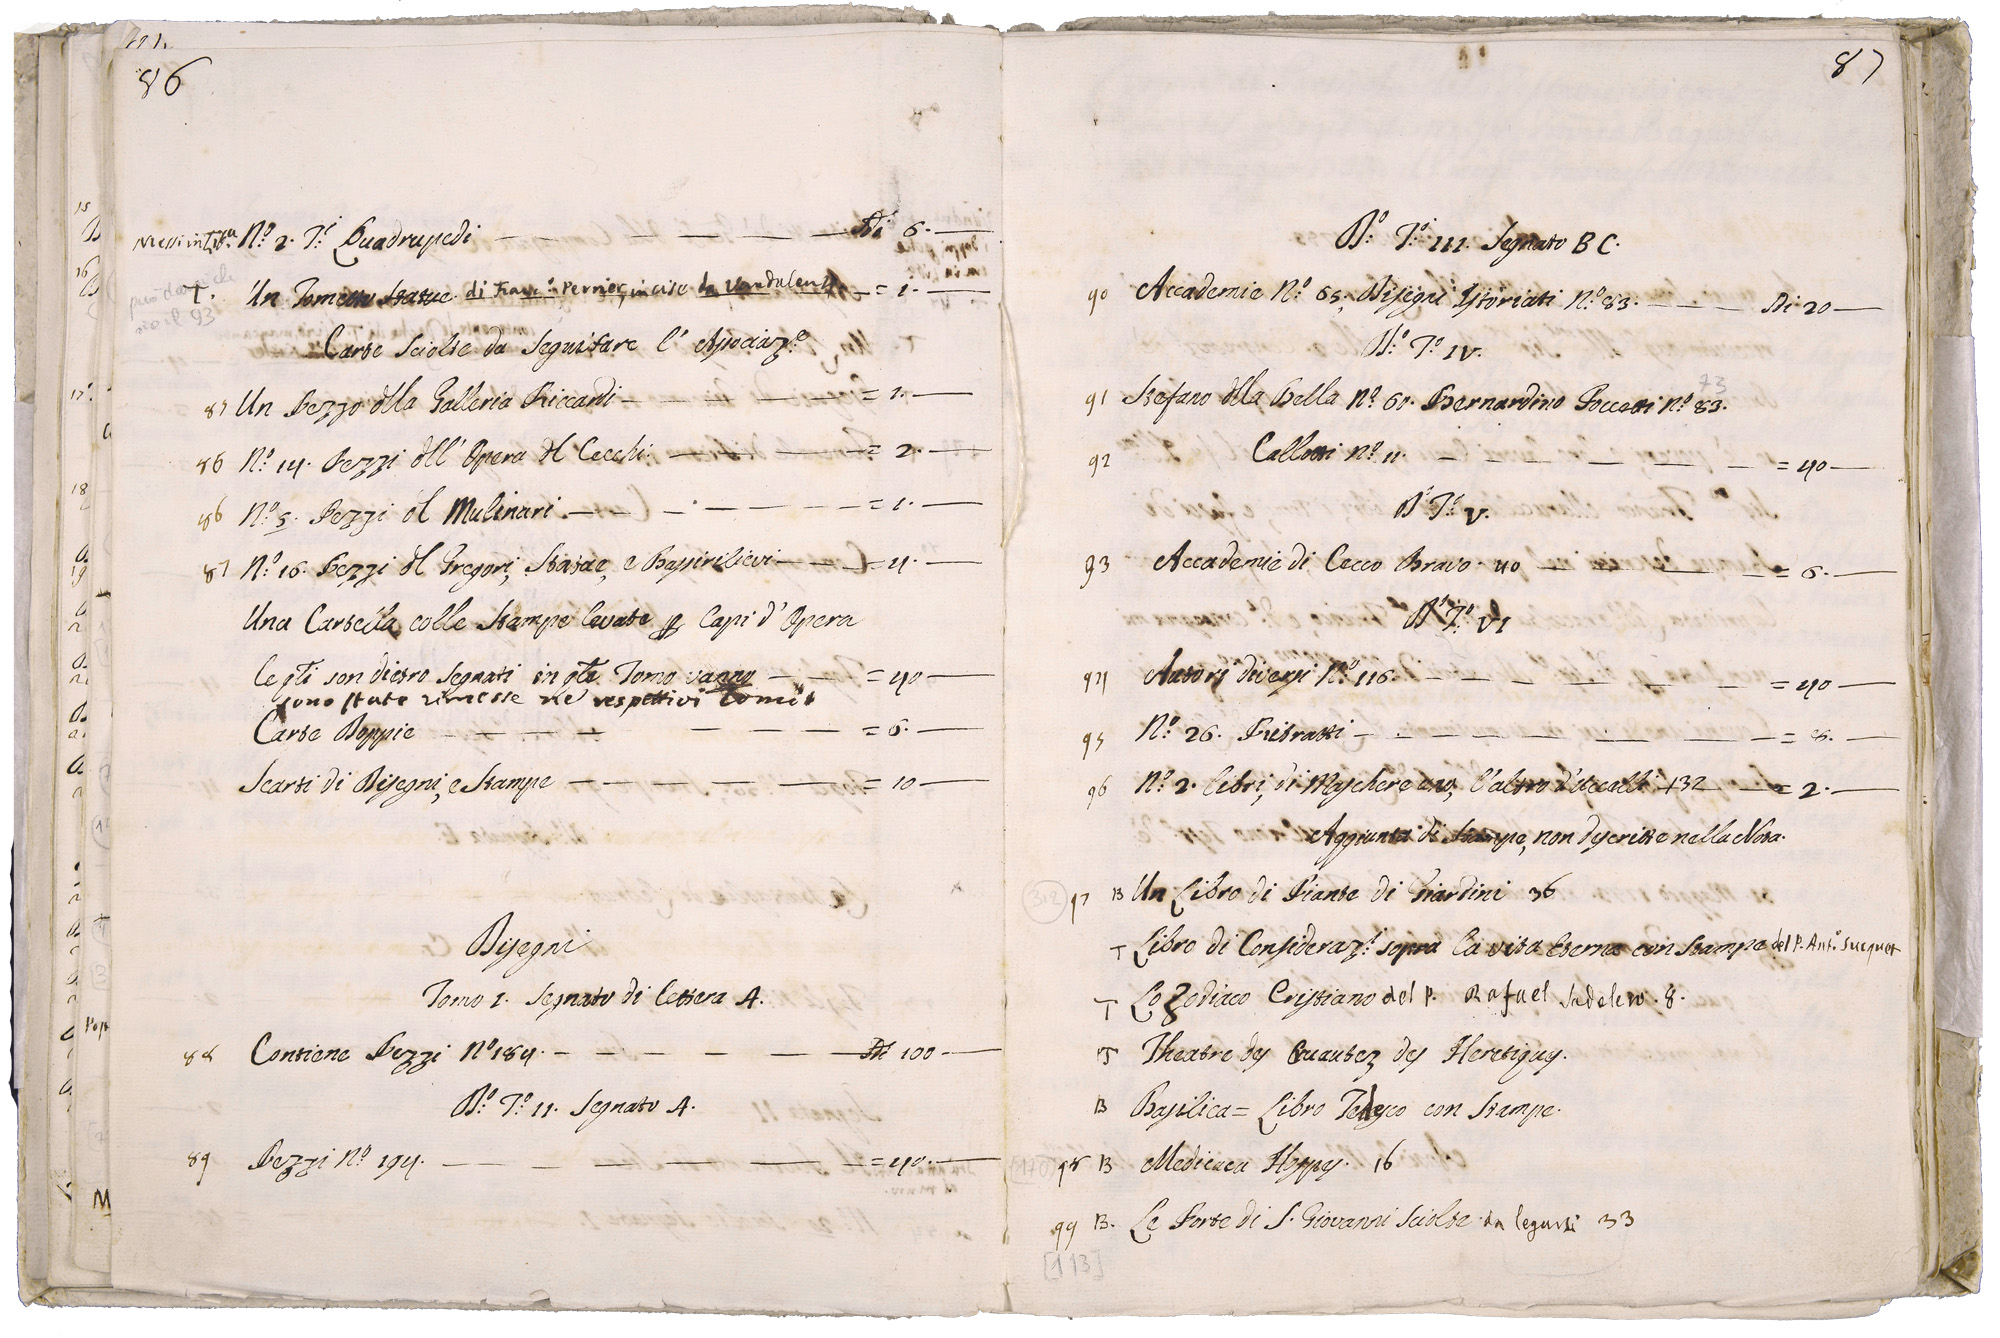 86
N.º 2. T.i Quadrupedi — Di 6. —
T. Un Tometto Statue di Franc.º Perrier, incise — = 1. —
può darsi che
sia il 93
Carte Sciolte da Seguitare l' Associaz.e
85 Un Pezzo dlla Galleria Riccardi — = 1. —
86 N.º 14. Pezzi dll' Opera dl Cecchi. — = 2. —
86 N.º 5. Pezzi dl Mulinari — = 1. —
87 N.º 16. Pezzi dl Gregori, Statue, e Bassirilievi — = 4. —
Una Cartella colle Stampe levate p Capi d' Opera
le qli son dietro Segnati in qto Tomo vanno — = 40 —
sono state rimesse ne respettivi tomi
Carte Doppie — = 6. —
Scarti di Disegni, e Stampe — = 10 —
Disegni
Tomo I. Segnato di lettera A.
88 Contiene Pezzi N.º 184. — Di 100 —
D.º T.º II. Segnato A.
89 Pezzi N.º 194. — = 40. —
87
D.º T.º III. Segnato B C.
90 Accademie N.º 65, Disegni Istoriati N.º 83. — Di 20 —
D.º T.º IV.
73
91 Stefano dlla Bella N.º 60. Bernardino Poccetti N.º 83.
92 Callotti N.º 11. — = 40 —
D.º T.º V.
93 Accademie di Cecco Bravo. 40 — = 6. —
D.º T.º VI
94 Autori diversi N.º 116. — = 40 —
95 N.º 26. Ritratti — = 8. —
96 N.º 2. libri, di Maschere uno, l'altro d'Uccelli +32 — = 2. —
Aggiunta di Stampe, non descritte nella Nota.
312 97 B Un Libro di Piante di Giardini 36
T Libro di Consideraz.i sopra la vita Eterna con Stampe del P. Ant.º Sucquet
T Lo Zodiaco Cristiano del P. Rafael Sadelero. 8.
T Theatre des Cruautez des Heretiques.
B Basilica = Libro Tedesco con Stampe.
[170] 98 B Medicaea Hospes. 16
99 B. Le Porte di S. Giovanni Sciolte da legarsi 33
[113]